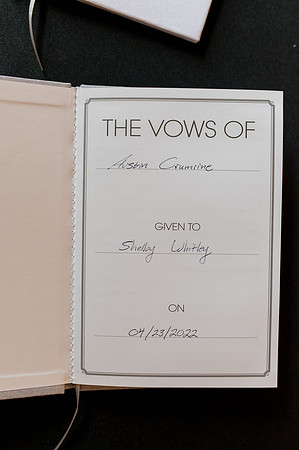 THE VOWS OF
Austin Crumrine
GIVEN TO
Shelby Whitley
ON
04/23/2022